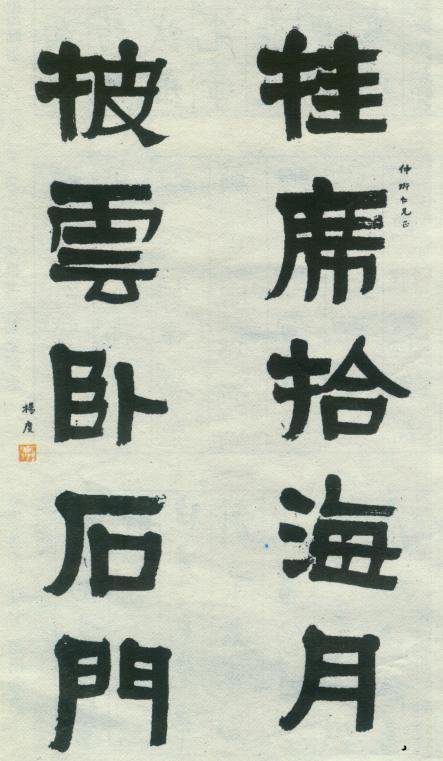 仁兄正
挂席拾海月
披雲卧石門
楊度